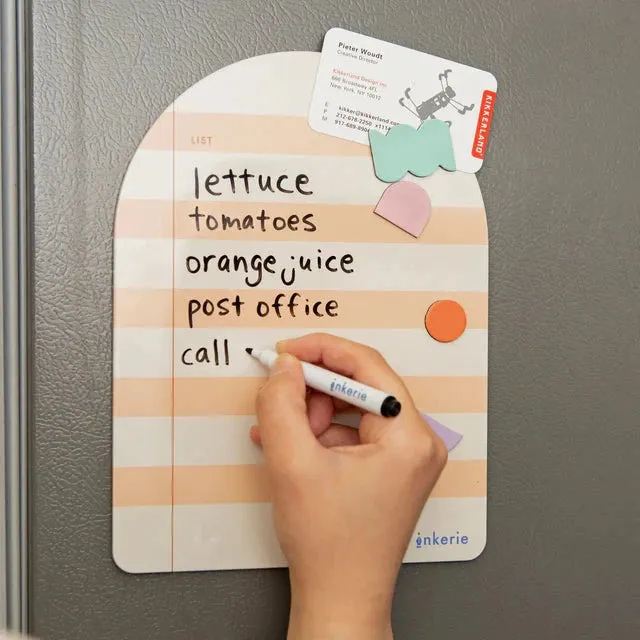 Pieter Woudt
Creative Director
Kikkerland Design Inc
666 Broadway 4FL
New York, NY 10012
E kikker@kikkerland.
P 212-678-2250 x1114
M 917-689-890
KIKKERLAND
LIST
lettuce
tomatoes
orange juice
post office
call
inkerie
inkerie